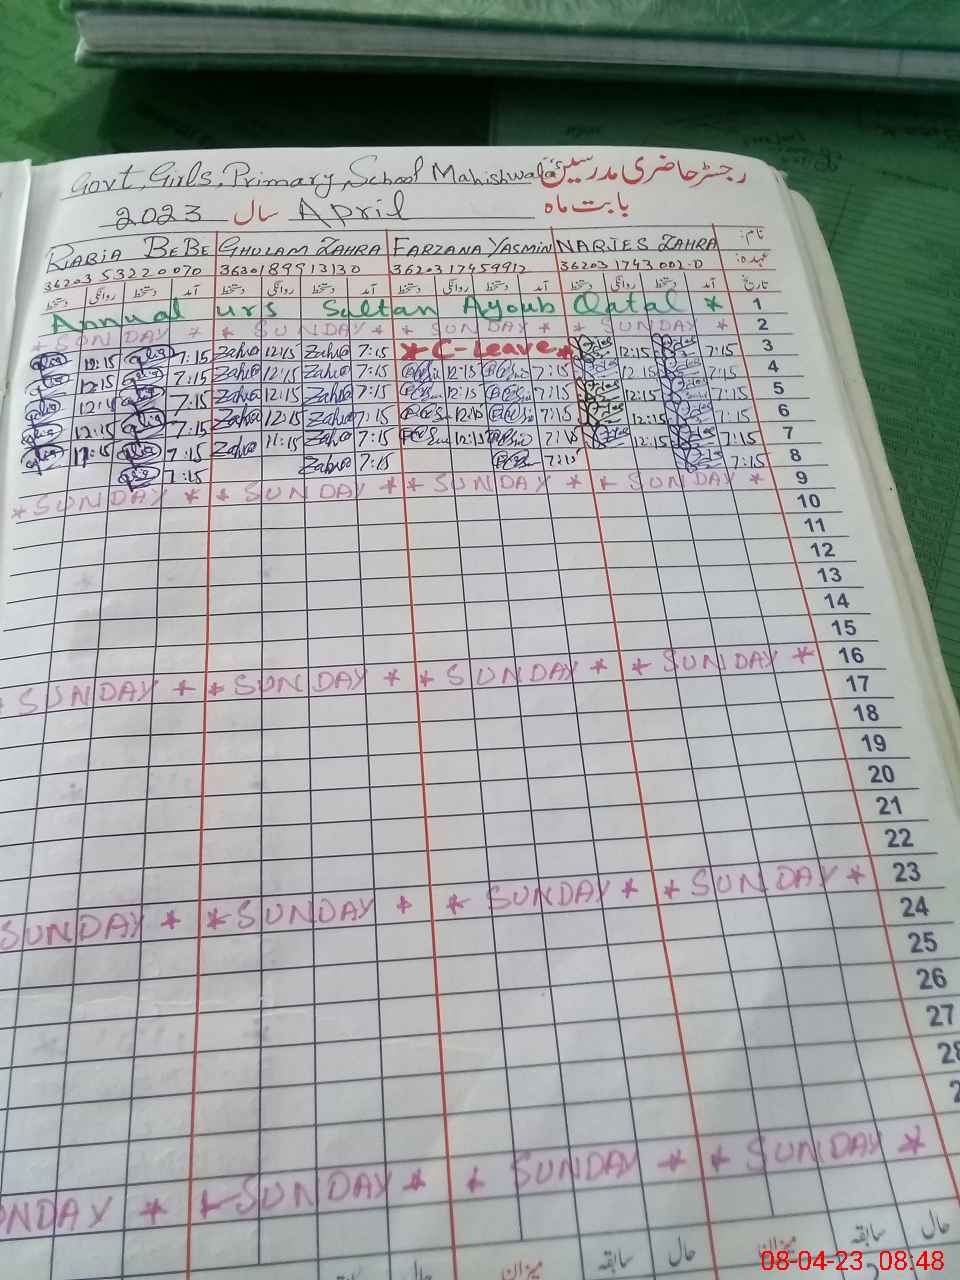 Govt, Girls, Primary, School Mahishwala رجسٹر حاضری مدرسین
2023 سال April بابت ماہ
RABIA BEBE GHULAM ZAHRA FARZANA YASMIN NARJES ZAHRA نام:
36203 53220070 36301 89913130 36203 17459912 36203 1743 002-0 عہدہ:
دستخط روانگی دستخط آمد دستخط روانگی دستخط آمد دستخط روانگی دستخط آمد دستخط روانگی دستخط آمد تاریخ
Annual urs Sultan Ayoub Qatal * 1
* SUNDAY * * SUNDAY * * SUNDAY * * SUNDAY * 2
12:15 7:15 Zahra 12:15 Zahra 7:15 * C-Leave * 12:15 7:15 3
12:15 7:15 Zahra 12:15 Zahra 7:15 12:15 7:15 12:15 7:15 4
7:15 Zahra 12:15 Zahra 7:15 12:15 7:15 12:15 7:15 5
12:15 7:15 Zahra 12:15 Zahra 7:15 7:15 12:15 7:15 6
7:15 Zahra 11:15 Zahra 7:15 12:15 12:15 7:15 7
7:15 Zahra 7:15 7:15 7:15 8
* SUNDAY * * SUNDAY * * SUNDAY * * SUNDAY * 9
10
11
12
13
14
15
* SUNDAY * * SUNDAY * * SUNDAY * * SUNDAY * 16
17
18
19
20
21
22
SUNDAY * * SUNDAY * * SUNDAY * * SUNDAY * 23
24
25
26
27
28
2
NDAY * * SUNDAY * * SUNDAY * * SUNDAY *
میزان سابقہ حال میزان سابقہ حال
08-04-23 08:48